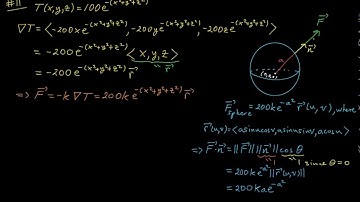 #11 T(x,y,z)=100e^-(x²+y²+z²)
∇T=<-200xe^-(x²+y²+z²), -200ye^-(x²+y²+z²), -200ze^-(x²+y²+z²)>
=-200e^-(x²+y²+z²) <x,y,z>
r⃗
=-200e^-(x²+y²+z²) r⃗
⇒ F⃗=-k∇T=200ke^-(x²+y²+z²) r⃗
F⃗
n⃗
a
F⃗sphere=200ke^-a² r⃗(u,v), where
r⃗(u,v)=<asinucosv,asinusinv,acosu>
⇒ F⃗·n⃗=||F⃗|| ||n⃗|| cosθ
1 1 since θ=0
=200ke^-a² ||r⃗(u,v)||
=200kae^-a²